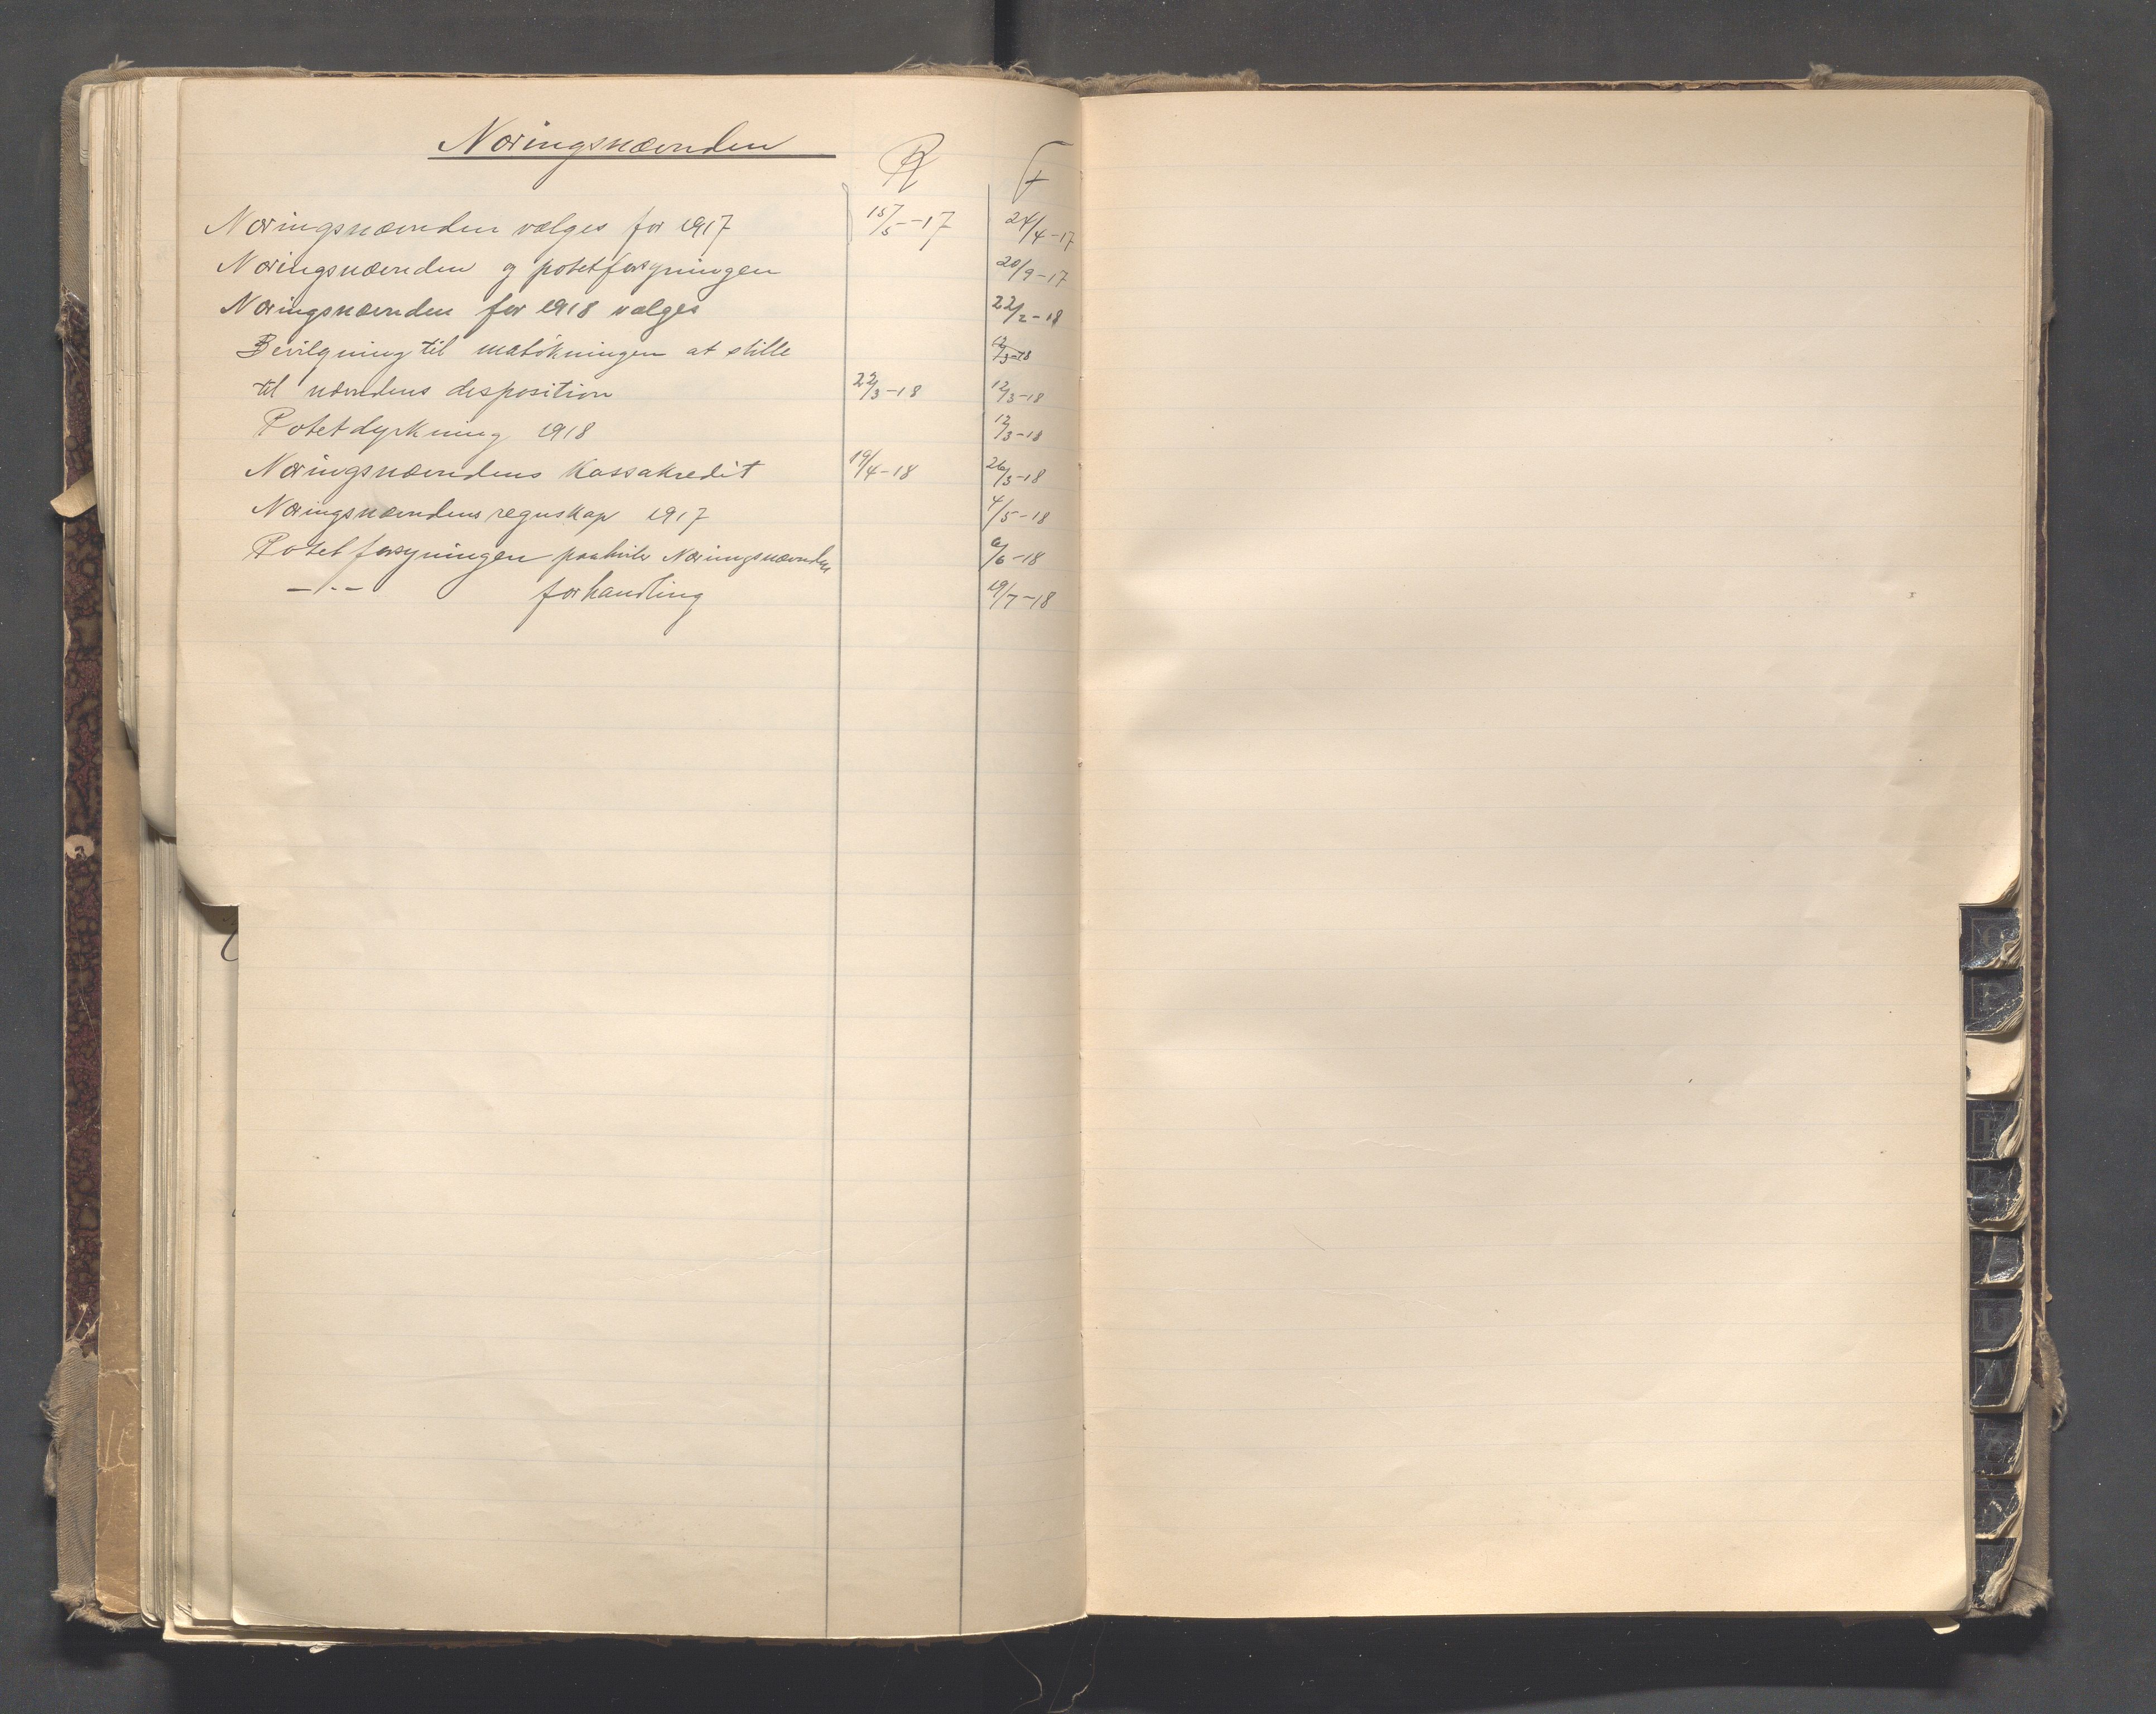 Næringsnævnden
R F
Næringsnævnden vælges for 1917 15/5-17 24/4-17
Næringsnævnden og potetforsyningen 20/9-17
Næringsnævnden for 1918 vælges 22/2-18
Bevilgning til matökningen at stille 12/3-18
til nævndens desposition 22/3-18 12/3-18
Potetdyrkning 1918 12/3-18
Næringsnævndens Kassakredit 19/4-18 26/3-18
Næringsnævndens regnskap 1917 4/5-18
Potetforsyningen paahviler Næringsnævnden 6/6-18
-"- forhandling 19/7-18